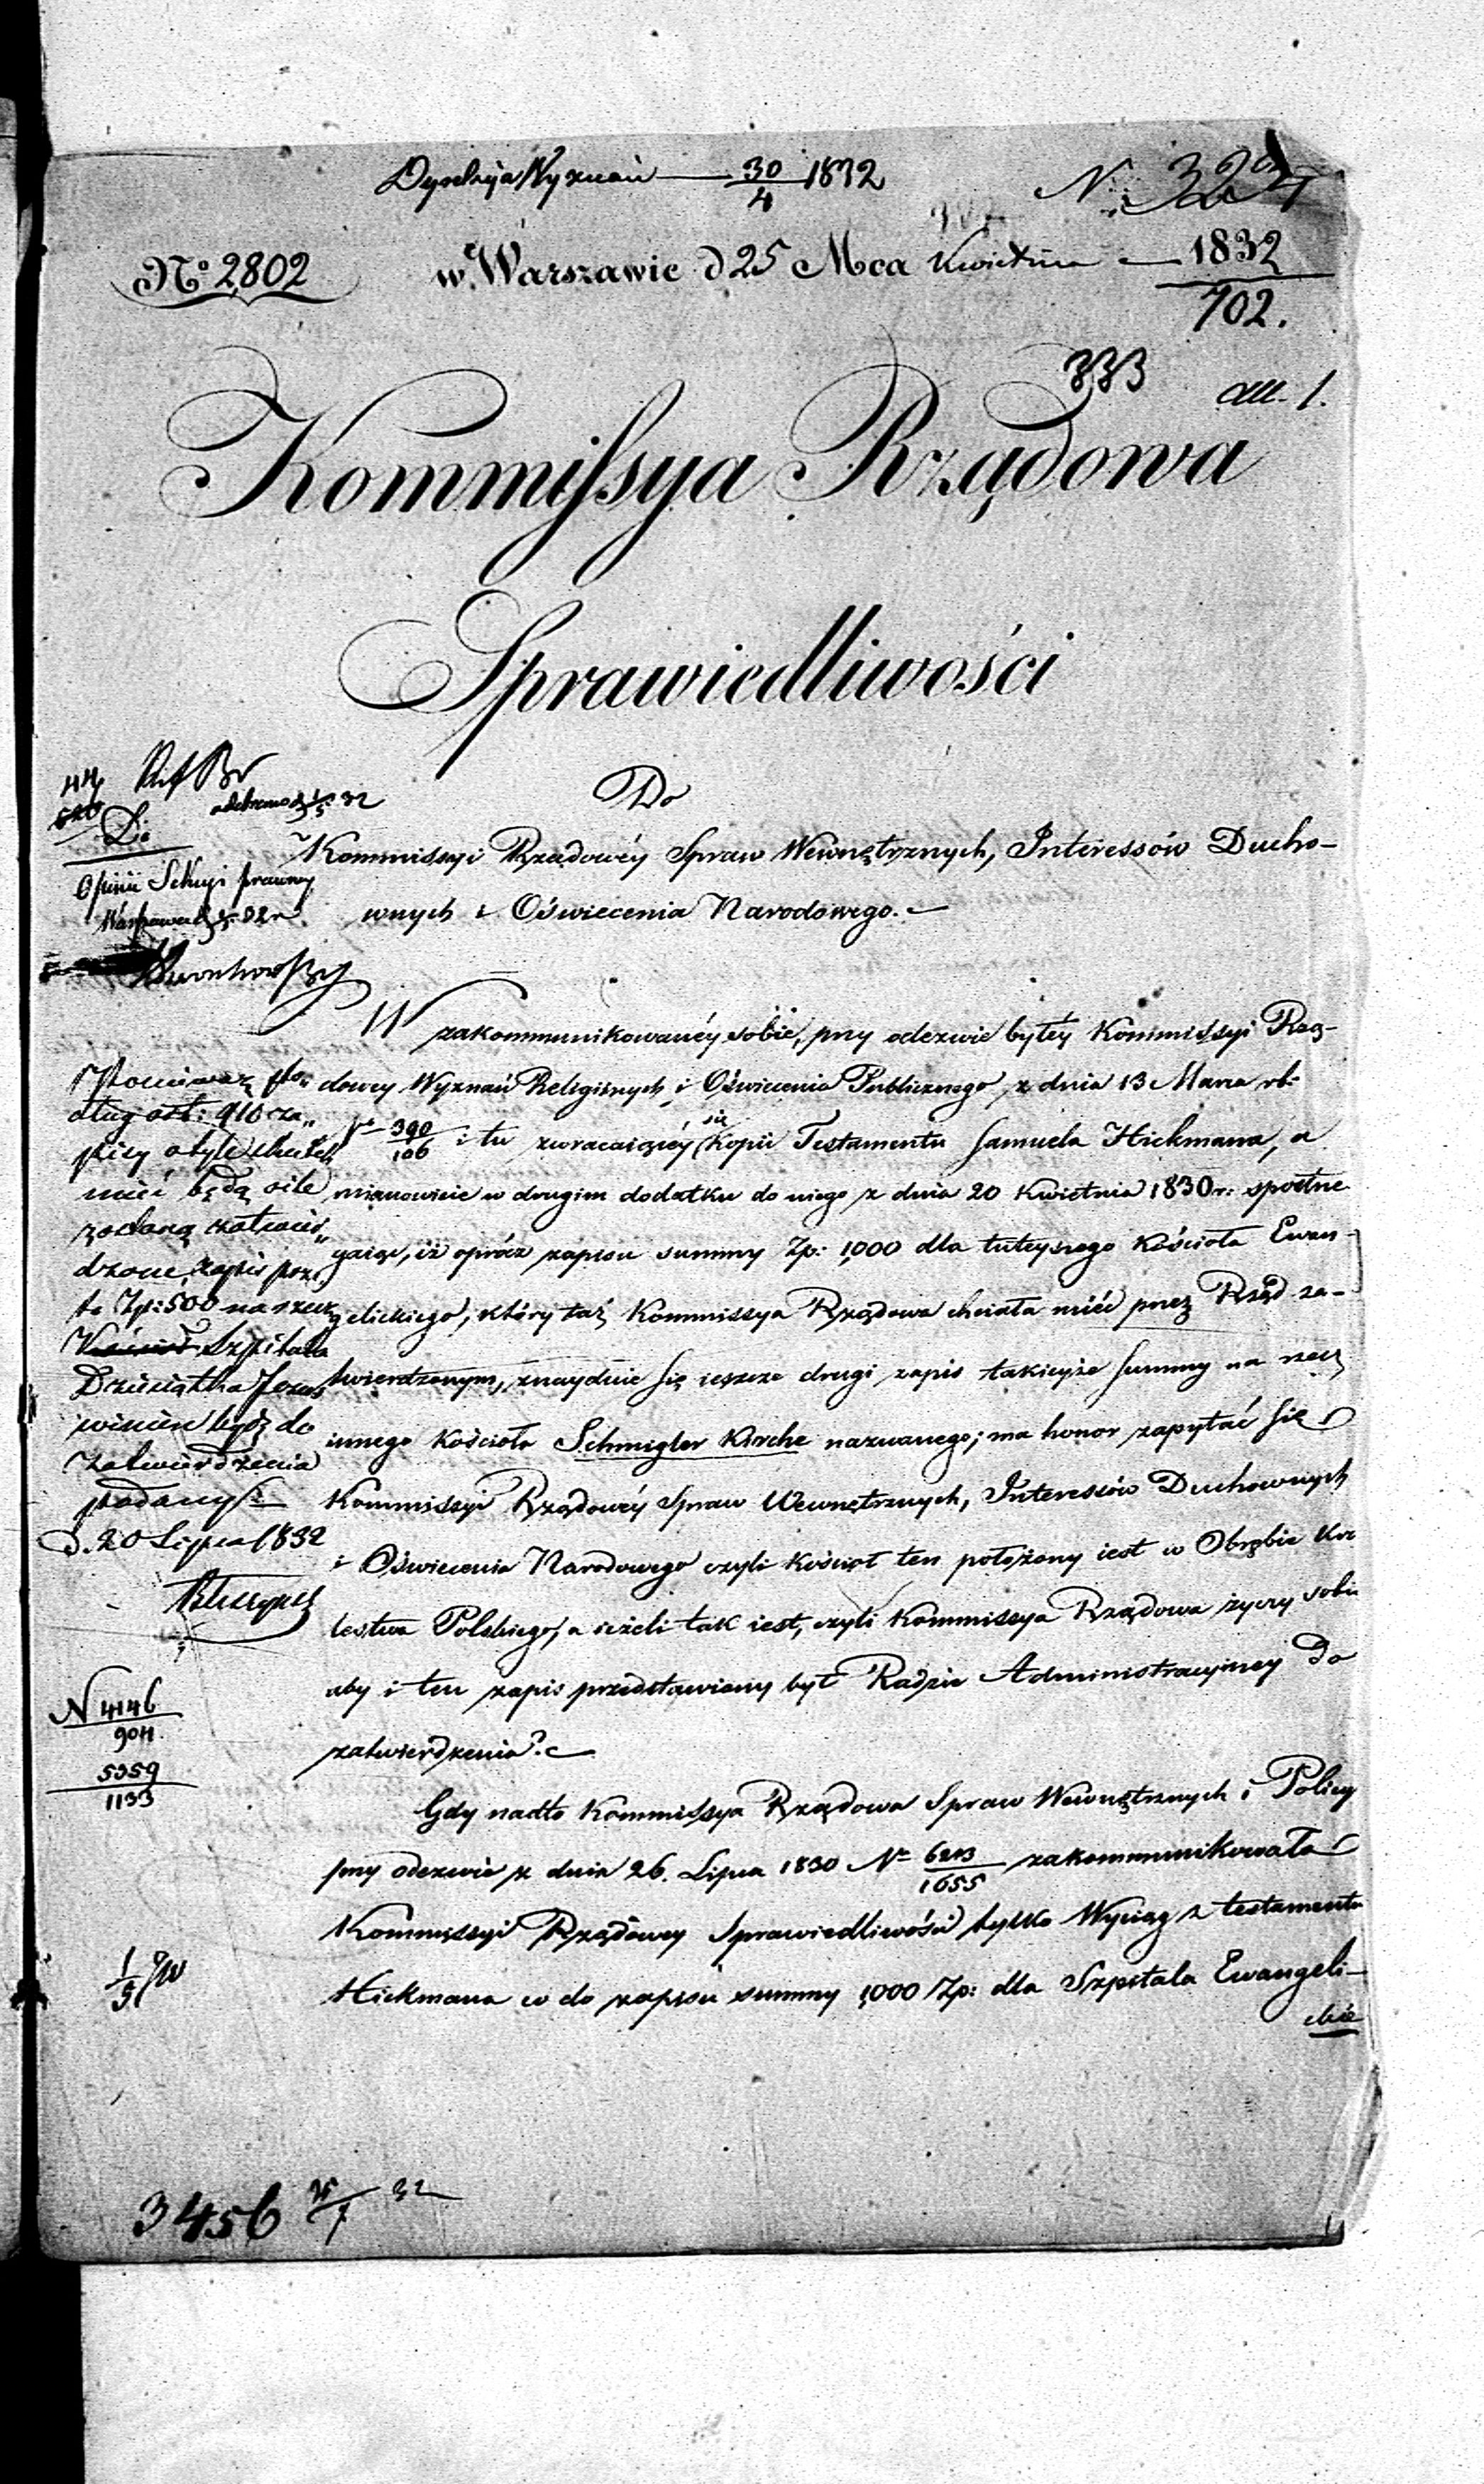 Dyrekcja Wyznań — 30/4 1832
N. 
w Warszawie d 25 Mca Kwietnia — 1832
702.
No 2802
333
all. 1.
Kommissya Rządowa
Sprawiedliwości
Do
Kommissyi Rządowéy Spraw Wewnętrznych, Interessów Ducho-
wnych i Oświecenia Narodowego. —
odebrano d 1/5 32
Opinii Sekcyi prawnéy
W zakommunikowanéy sobie, przy odezwie byłéy Kommissyi Rzą-
dowey Wyznań Religiinych i Oświecenia Publicznego, z dnia 13 Marca rb:
No 390/106 i tu zwracaiącéy się Kopii Testamentu Samuela Hickmana, a
mianowicie w drugim dodatku do niego z dnia 20 Kwietnia 1830 r: spostrze
gaiąc, iż oprócz zapisu summy Zp: 1,000 dla tuteyszego Kościoła Ewan-
gelickiego, który taż Kommissya Rządowa chciała mieć przez Rząd za-
twierdzonym, znayduie się ieszcze drugi zapis takieyże summy na rzecz
innego Kościoła Schmigler Kirche nazwanego; ma honor zapytać się
Kommissyi Rządowéy Spraw Wewnętrznych, Interessów Duchownych
i Oświecenia Narodowego czyli kościoł ten położony iest w Obrębie Kró
lestwa Polskiego, a ieżeli tak iest, czyli Kommissya Rządowa życzy sobie
aby i ten zapis przedstawiony był Radzie Administracyjney do
zatwierdzenia? —
Gdy nadto Kommissya Rządowa Spraw Wewnętrznych i Policyi
przy odezwie z dnia 26. Lipca 1830 No 6213/1655 zakommunikowała
Kommissyi Rządowey Sprawiedliwości tylko Wyciąg z testamentu
Hickmana co do zapisu summy 1,000 Zp: dla Szpitala Ewangeli-
ckie
Ponieważ po„
dług art: 910 za„
pisy o tyle skutek
mieć będą o ile
zostaną zatwier„
dzone, zapis prze
to Zp: 500 na rzecz
Szpitala
Dzieciątka Jezus
winien bydź do
zatwierdzenia
podany
d. 20 Lipca 1832
N 4146
904
5359
1133
3456
32